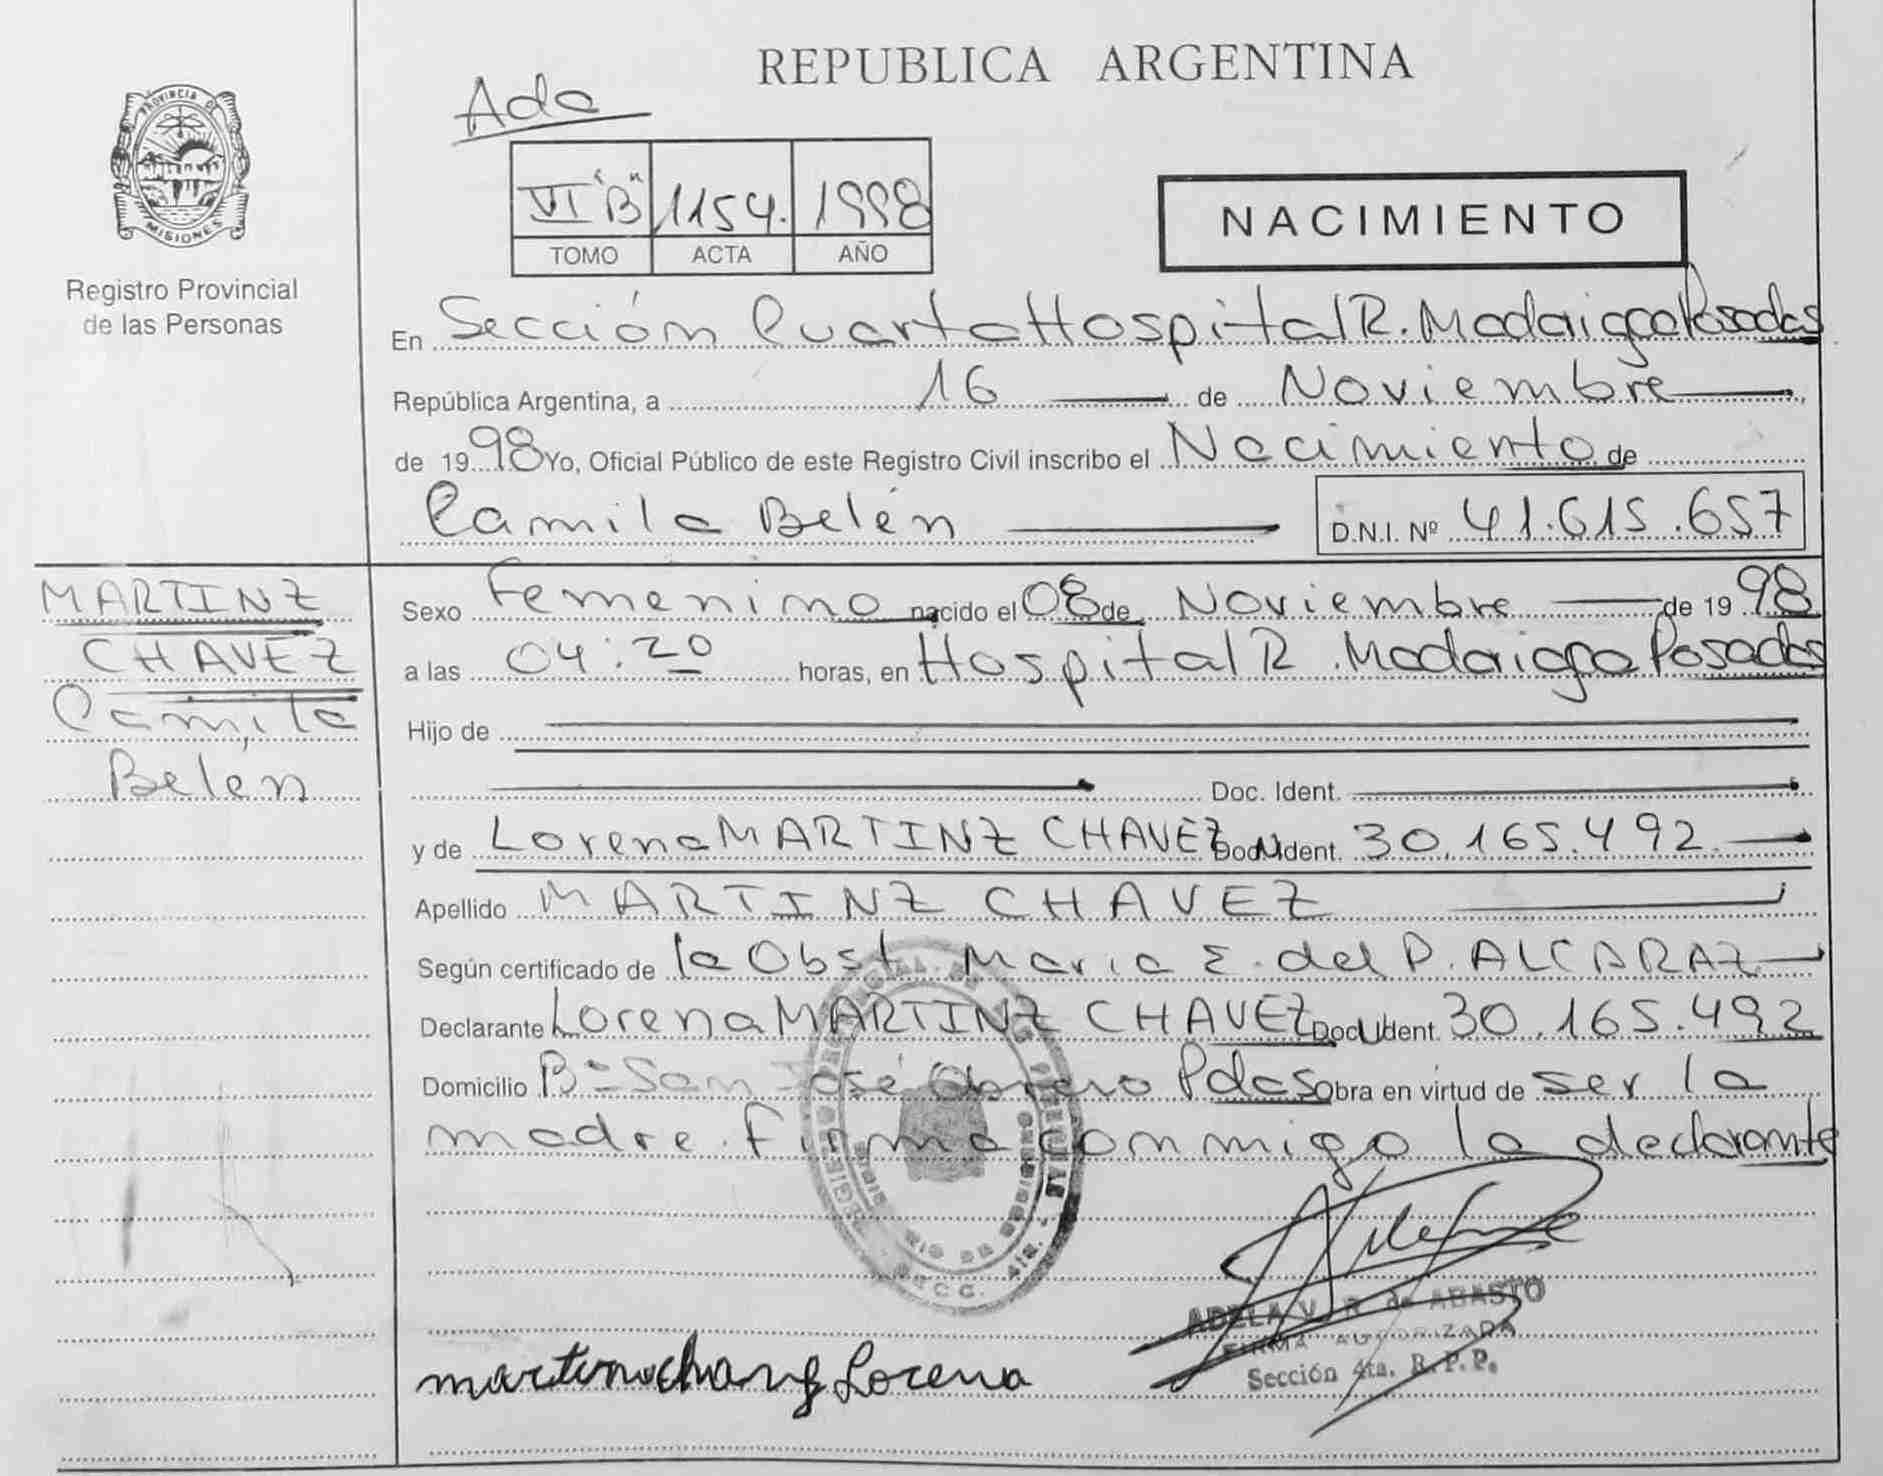 REPUBLICA ARGENTINA
Ada
VI "B" 1154. 1998
TOMO ACTA AÑO
NACIMIENTO
PROVINCIA DE
MISIONES
Registro Provincial
de las Personas
En Sección Cuarta Hospital R. Madariaga Posadas
República Argentina, a 16 de Noviembre
de 1998 Yo, Oficial Público de este Registro Civil inscribo el Nacimiento de
Camila Belén D.N.I. Nº 41.615.657
MARTINZ
CHAVEZ
Camila
Belén
Sexo Femenino nacido el 08 de Noviembre de 1998
a las 04:20 horas, en Hospital R. Madariaga Posadas
Hijo de
Doc. Ident.
y de Lorena MARTINZ CHAVEZ Doc. Ident. 30.165.492
Apellido MARTINZ CHAVEZ
Según certificado de la Obst. Maria E. del P. ALCARAZ
Declarante Lorena MARTINZ CHAVEZ Doc. Ident. 30.165.492
Domicilio Bº San José Obrero Pdas Obra en virtud de ser la
madre. Firma conmigo la declarante
ADELA V. R. de ABASTO
FIRMA AUTORIZADA
Sección 4ta. R. P. P.
Lorena